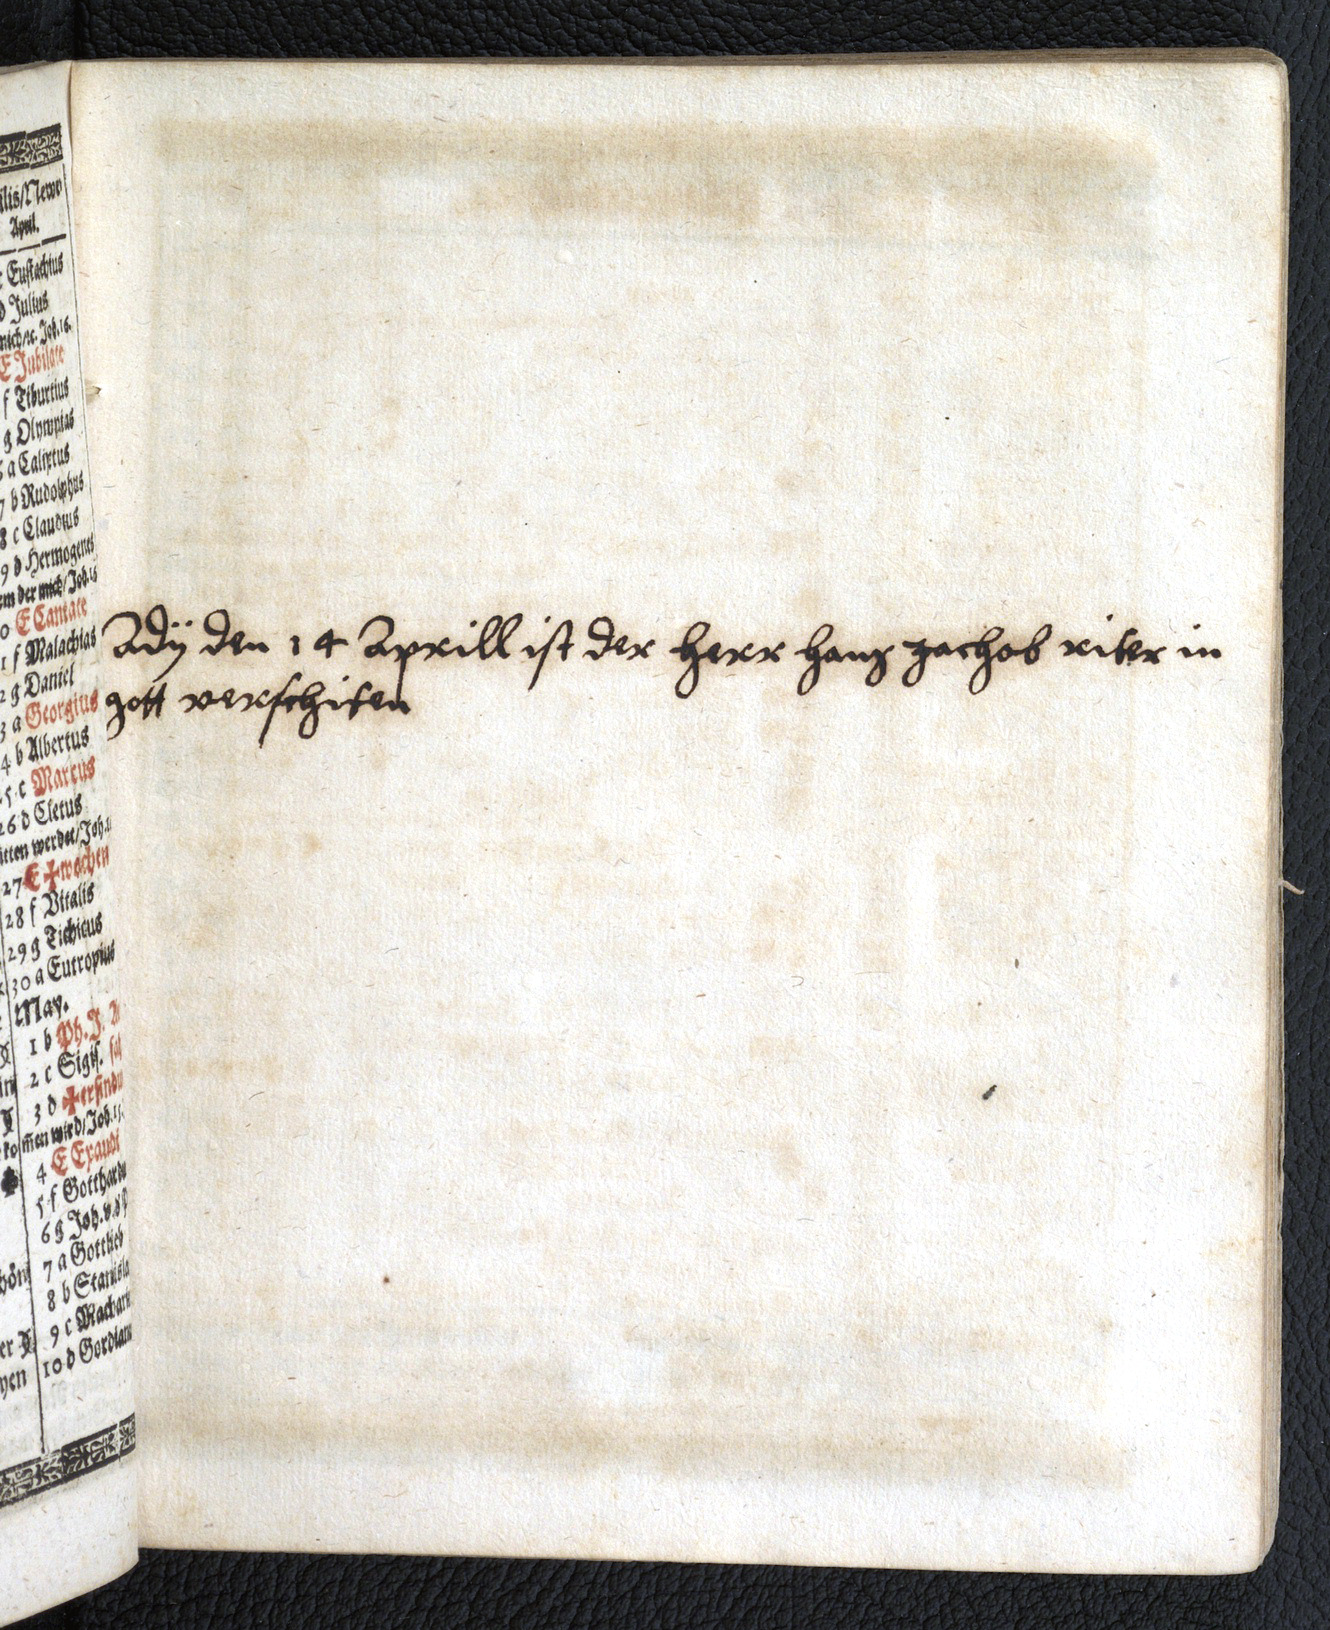 ilis/New
April.
Eustachius
d Julius
mich/ꝛc. Joh.16.
E Jubilate
f Tiburtius
g Olympias
a Calixtus
7 b Rudolphus
8 c Claudius
9 d Hermogenes
em der mich/Joh.16
0 E Cantate
1 f Malachias
2 g Daniel
3 a Georgius
4 b Albertus
25 c Marcus
26 d Cletus
itten werdet/Joh.
27 E ✠wochen
28 f Vitalis
29 g Tichicus
30 a Eutropius
May.
1 b Ph. J.
2 c Sigis.
3 d ✠erfindu
kom̄en wird/Joh.15.
4 E Exaudi
5 f Gotthardu
6 g Joh. v. d
7 a Gottlieb
8 b Stanisla
9 c Macharie
10 d Gordianu
Adÿ den 14 Aprill ist der herr hans jachob riter in
gott verschiten